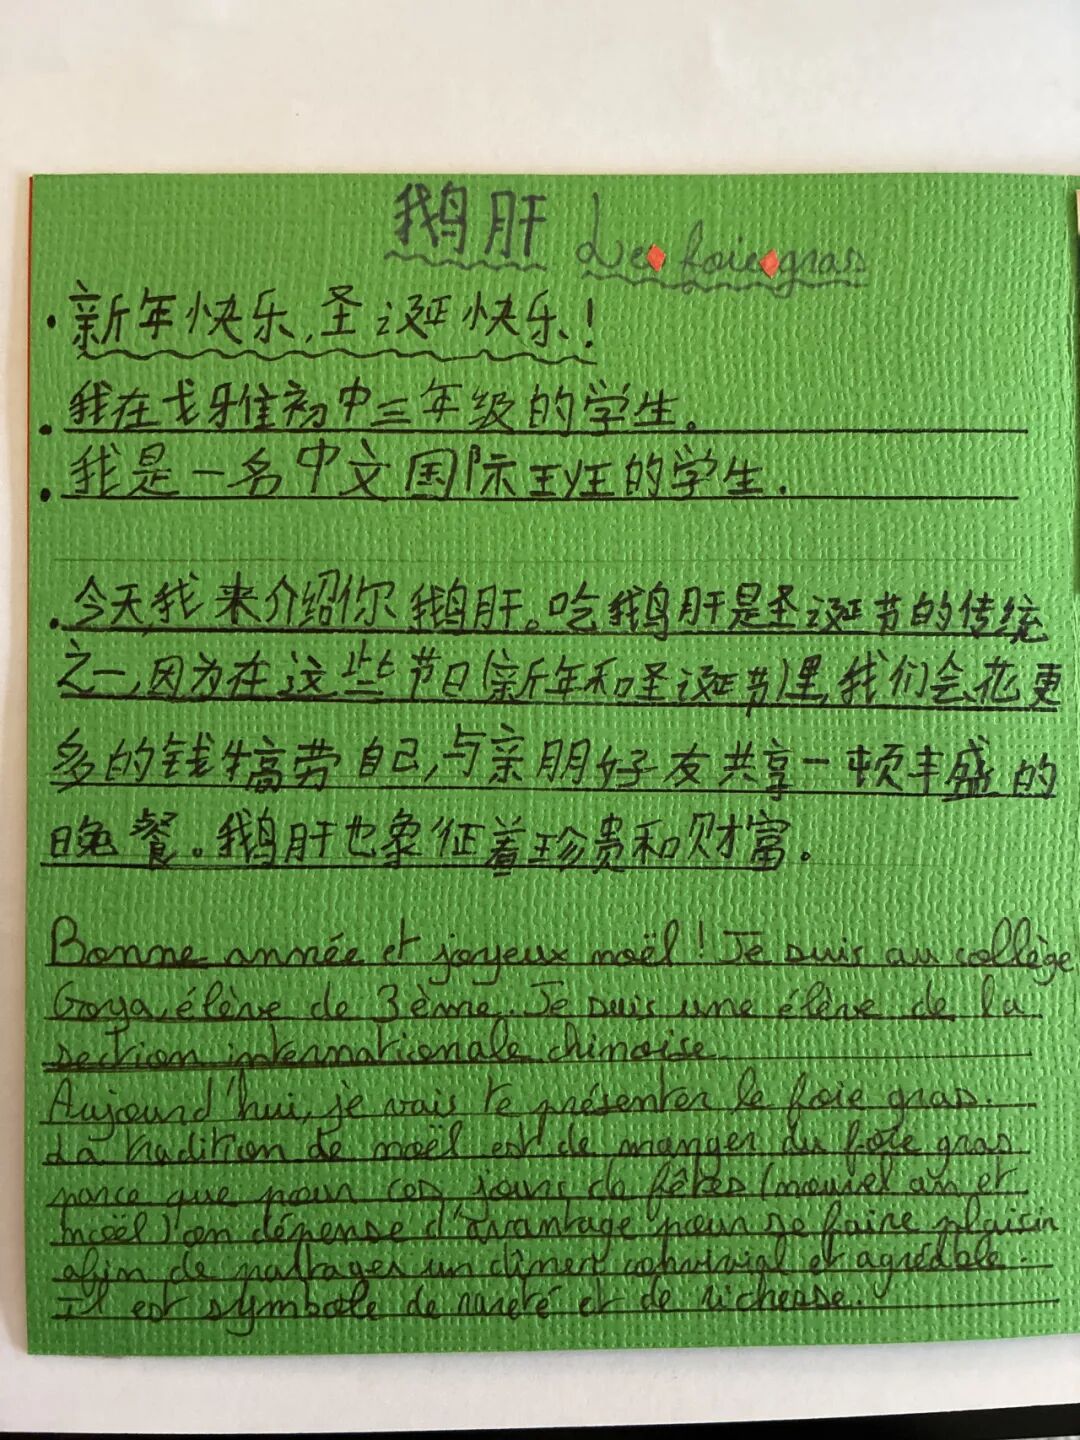 鹅肝 Le foie gras
新年快乐,圣诞快乐!
我在戈雅初中三年级的学生。
我是一名中文国际班的学生.
今天我来介绍你鹅肝。吃鹅肝是圣诞节的传统
之一,因为在这些节日(新年和圣诞节)里,我们会花更
多的钱犒劳自己,与亲朋好友共享一顿丰盛的
晚餐。鹅肝也象征着珍贵和财富。
Bonne année et joyeux noël! Je suis au collège
Goya, élève de 3ème. Je suis une élève de la
section internationale chinoise
Aujourd'hui, je vais te présenter le foie gras.
La tradition de noël est de manger du foie gras
parce que pour ces jours de fêtes (nouvel an et
noël) on dépense d'avantage pour se faire plaisir
afin de partager un dîner convivial et agréable.
Il est symbole de rareté et de richesse.